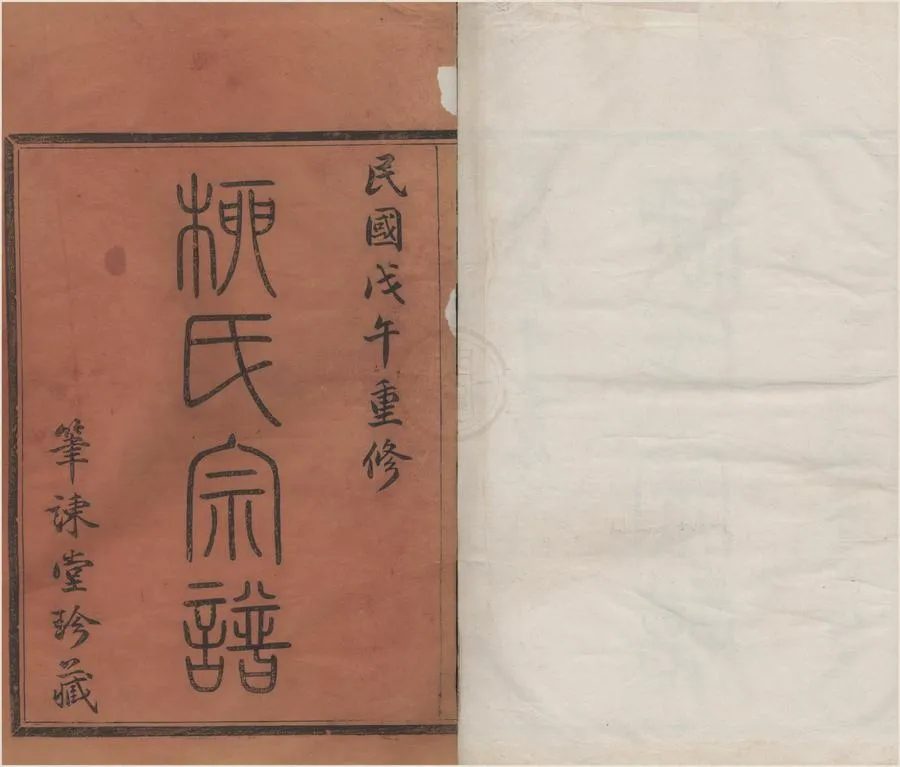 民國戊午重修
柳氏宗譜
筆諫堂珍藏